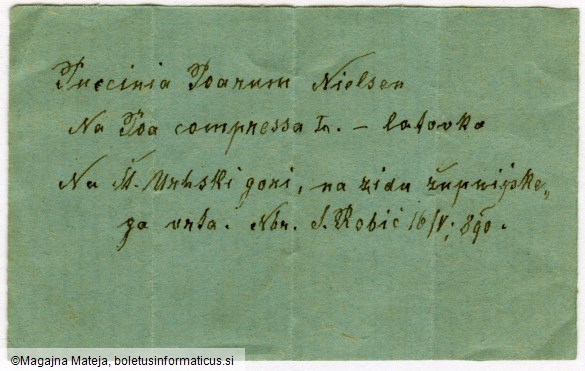 Puccinia Poarum Nielsen
Na Poa compressa L. – latovka
Na Št. Urhski gori, na zidu župnijske„
ga vrta. Nbr. S. Robič 16/V. 890.
©Magajna Mateja, boletusinformaticus.si